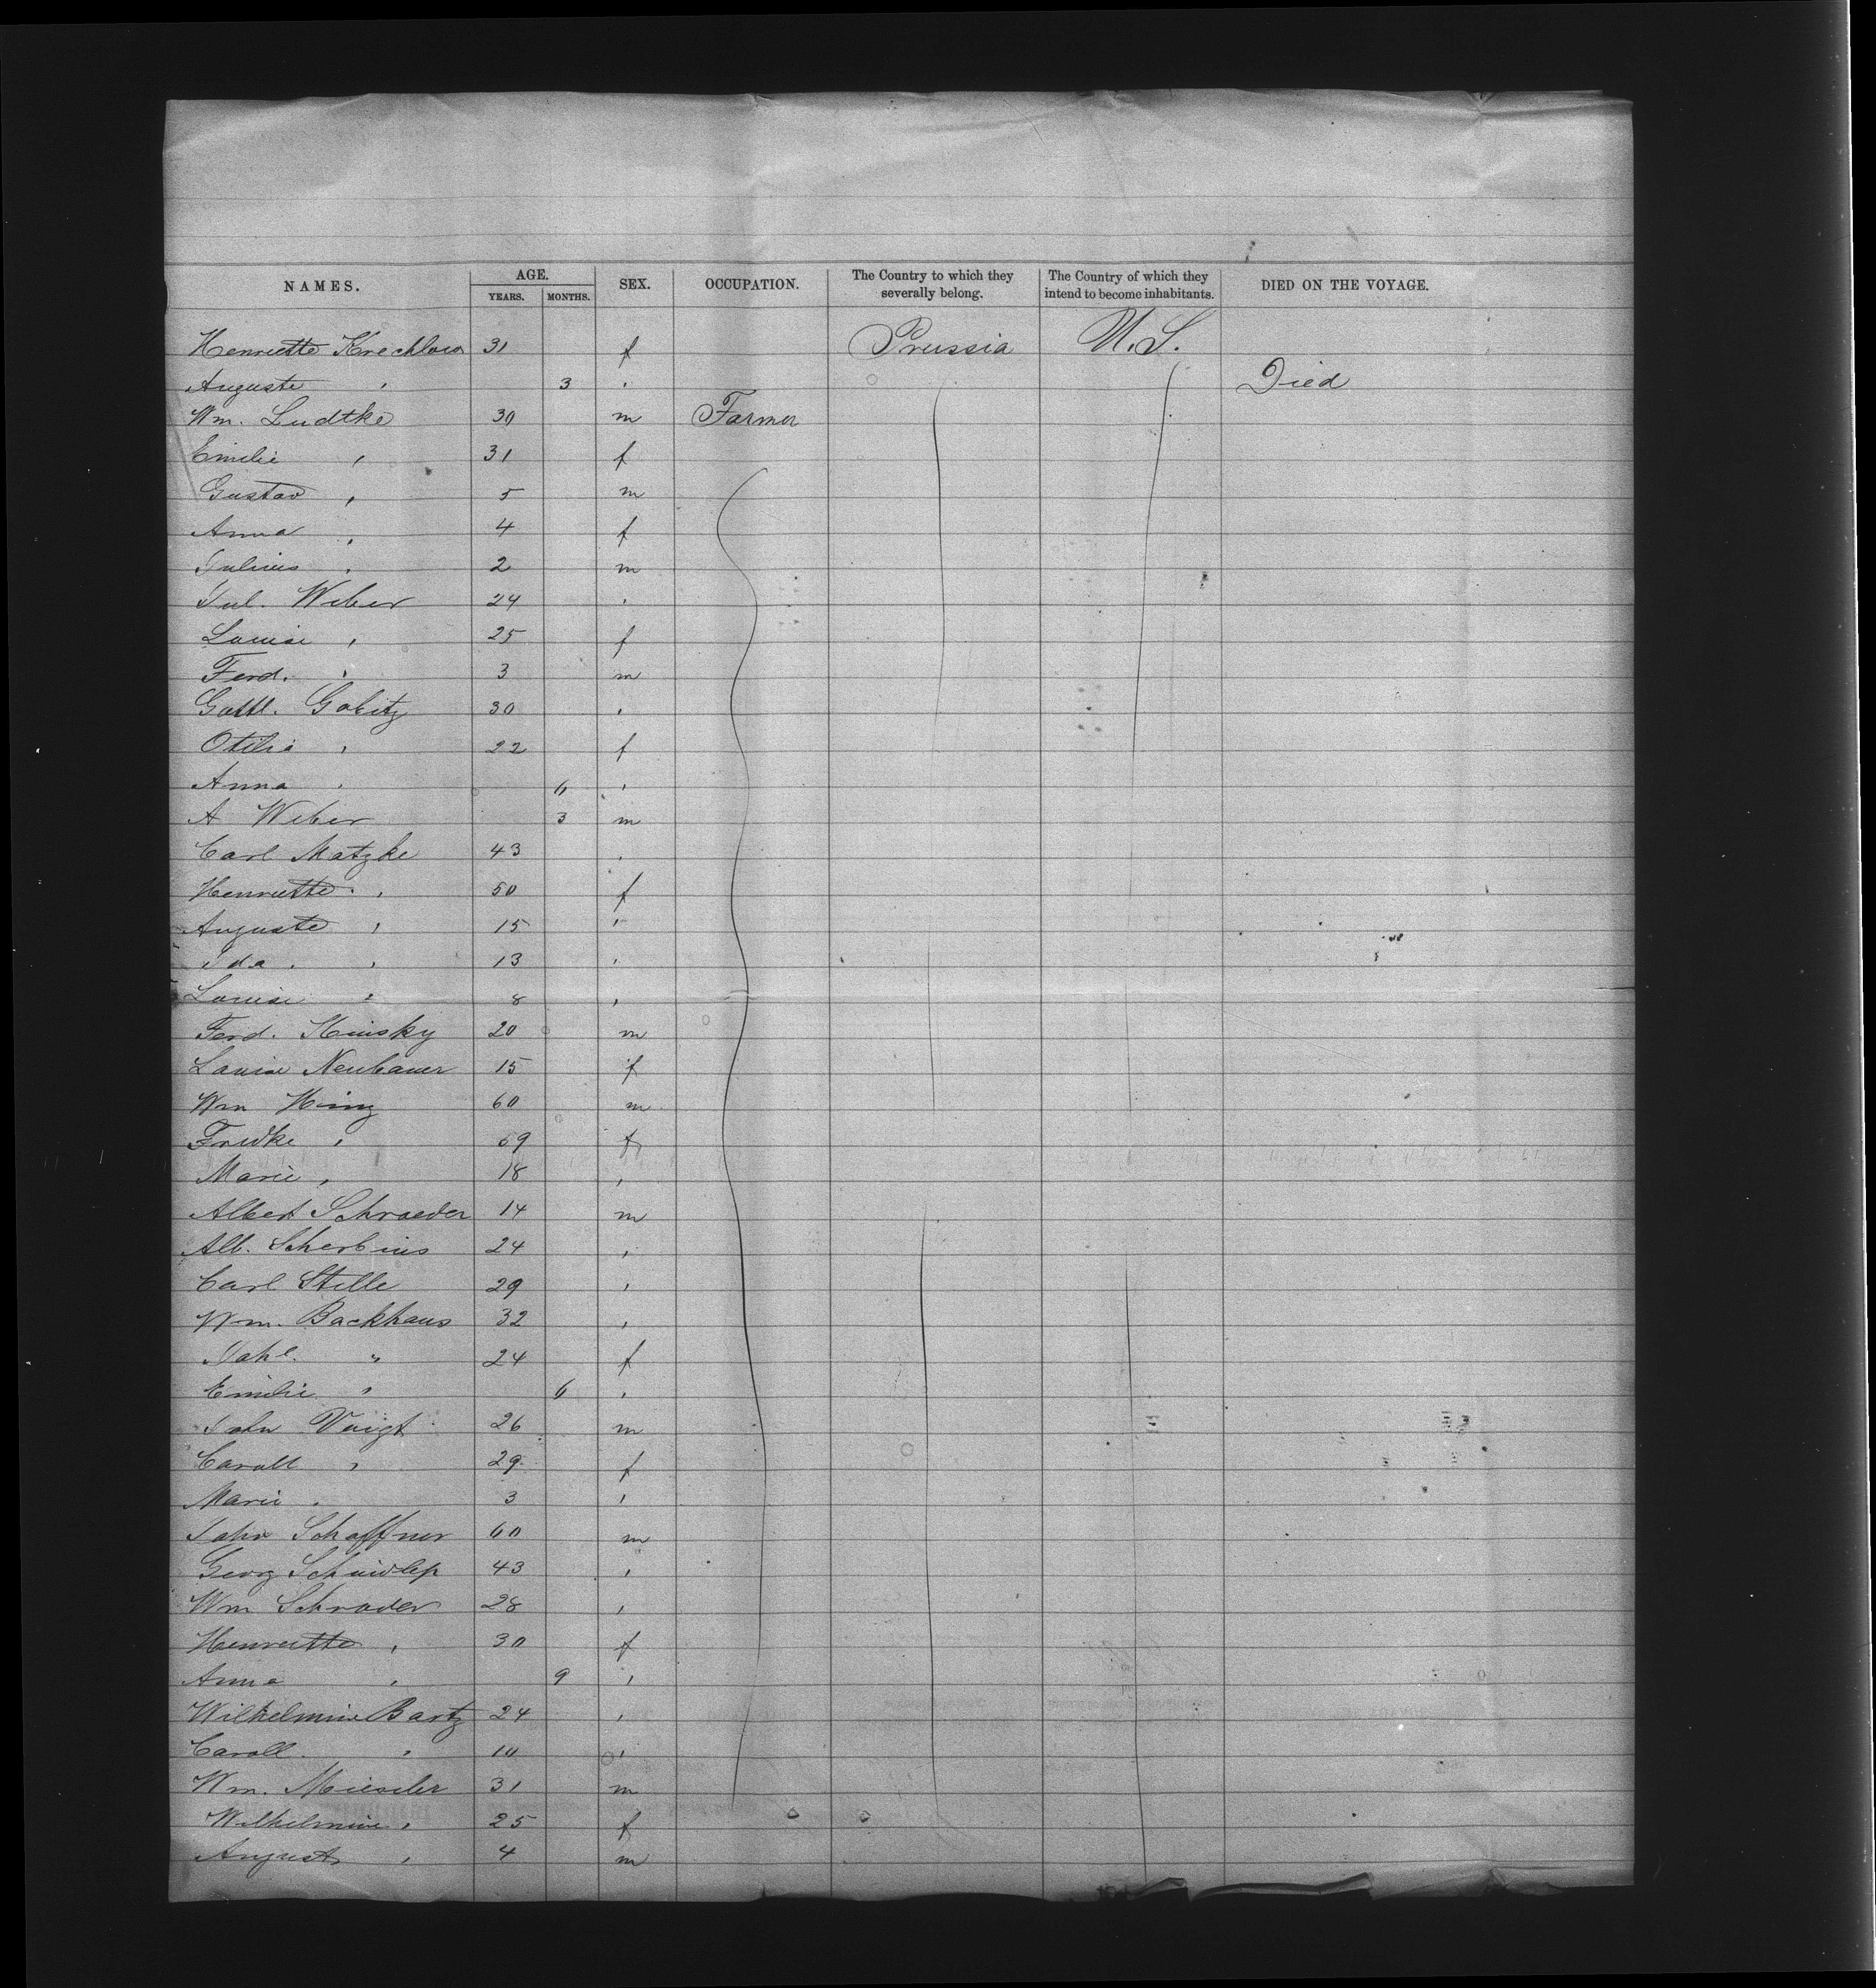 NAMES. AGE. YEARS. MONTHS. SEX. OCCUPATION. The Country to which they severally belong. The Country of which they intend to become inhabitants. DIED ON THE VOYAGE.
Henriette Krechlow 31 f Prussia U.S.
Auguste " 3 " Died
Wm. Ludtke 30 m Farmer
Emilie " 31 f
Gustav " 5 m
Anna " 4 f
Julius " 2 m
Jul. Weber 24 "
Louise " 25 f
Ferd. " 3 m
Gottl. Gobitz 30 "
Otilie " 22 f
Anna " 6 "
A Weber 3 m
Carl Matzke 43 "
Henriette " 50 f
Auguste " 15 "
Ida " 13 "
Louise " 8 "
Ferd. Kinsky 20 m
Louise Neubauer 15 f
Wm Hinz 60 m
Fridke " 69 f
Marie " 18 "
Albert Schroeder 14 m
Alb. Scherbius 24 "
Carl Stille 29 "
Wm. Backhaus 32 "
Joh. " 24 f
Emilie " 6 "
John Voigt 26 m
Caroll " 29 f
Marie " 3 "
John Schaffner 60 m
Georg 43 "
Wm Schrader 28 "
Henriette " 30 f
Anna " 9 "
Wilhelmine Bartz 24 "
Caroll. " 10 "
Wm. 31 m
Wilhelmine " 25 f
August " 4 m